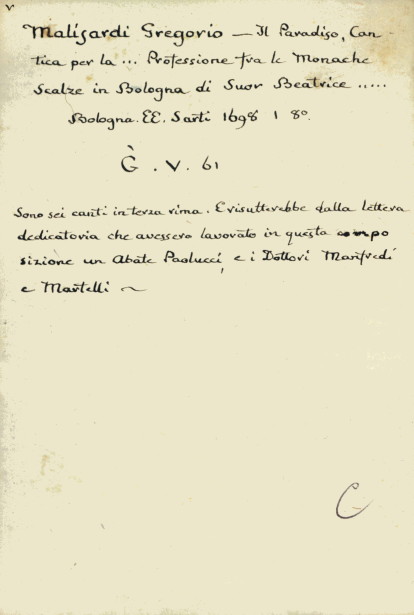 v
Malisardi Gregorio — Il Paradiso, Can-
tica per la ... Professione fra le Monache
Scalze in Bologna di Suor Beatrice .....
Bologna. EE. Sarti 1698 1 8º.
G . V. 61
Sono sei canti in terza rima. E risulterebbe dalla lettera
dedicatoria che avessero lavorato in questa compo
sizione un Abate Paolucci, e i Dottori Manfredi
e Martelli ~
C